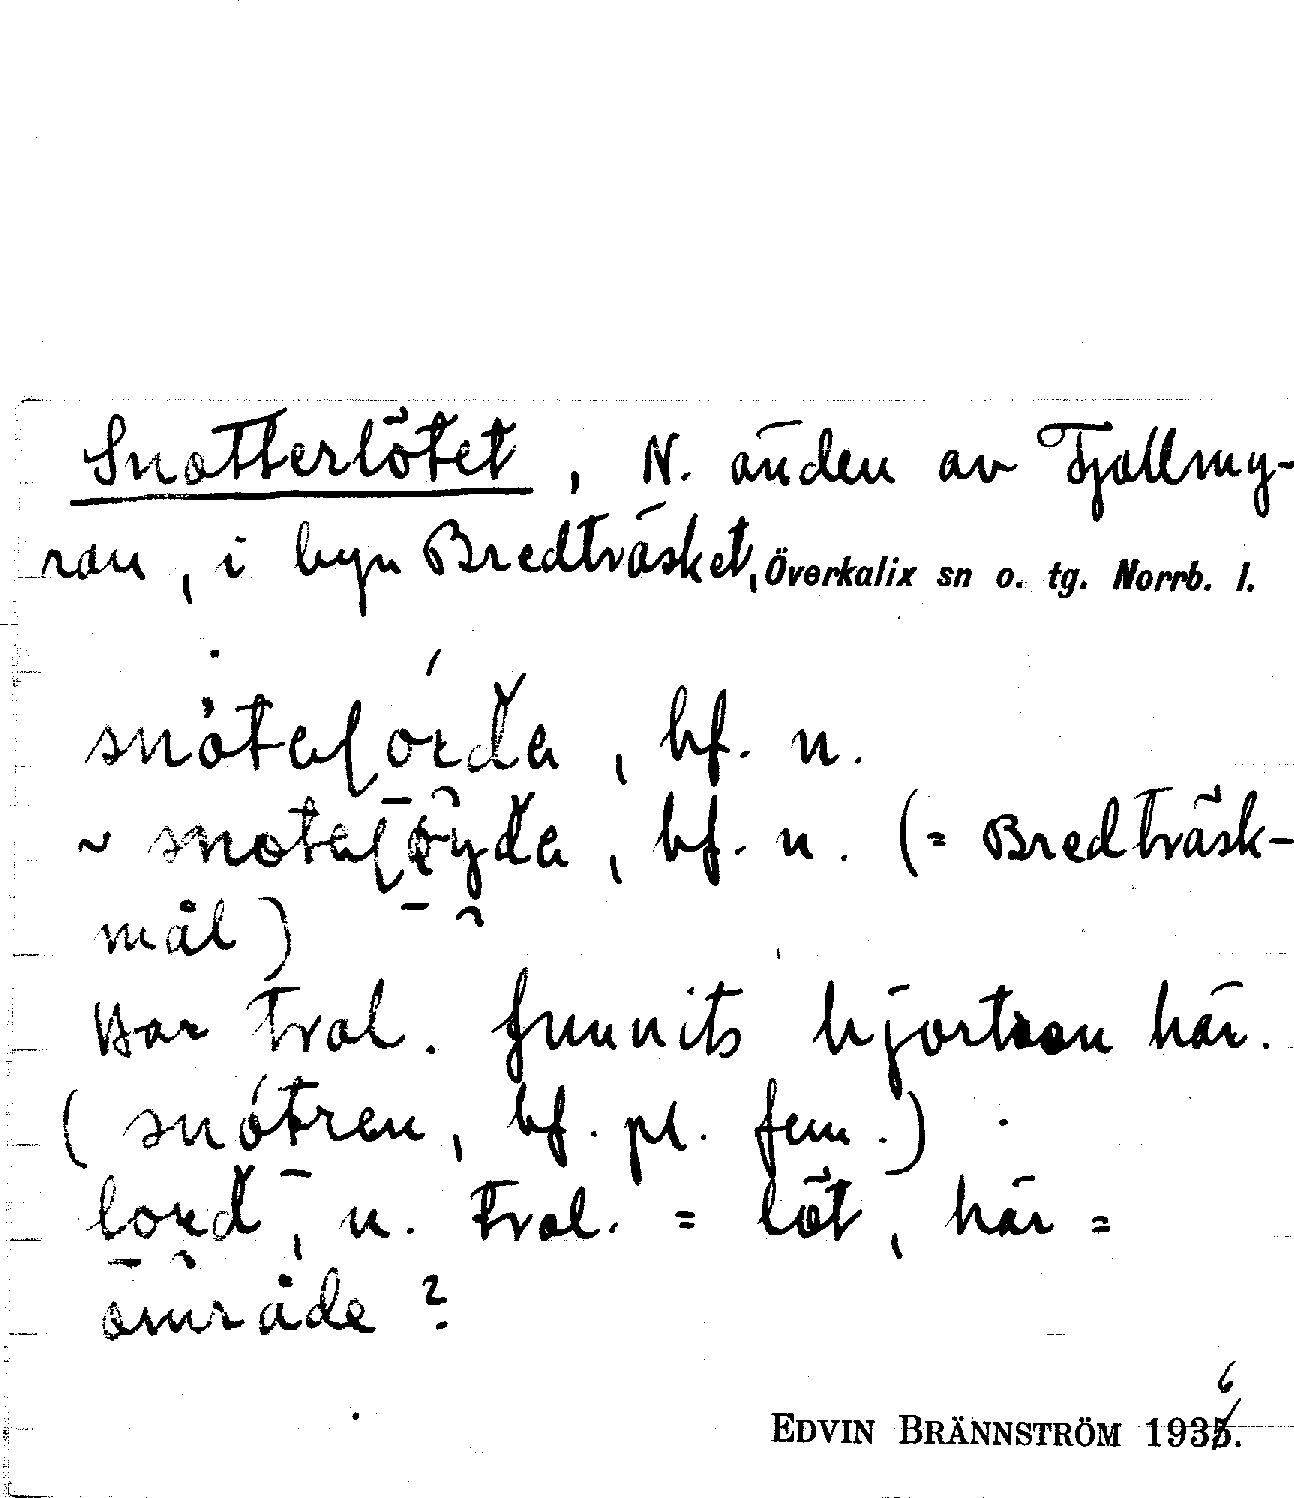 Snotterlötet, N. änden av Fjällmy-
ran, i byn Bredträsket, Överkalix sn o. tg. Norrb. l.
bf. n.
~ bf. n. (= Bredträsk-
mål)
Har tral. funnits hjortron här.
(snótren, bf. pl. fem.)
n. tral. = löt, här =
område?
EDVIN BRÄNNSTRÖM 1936.